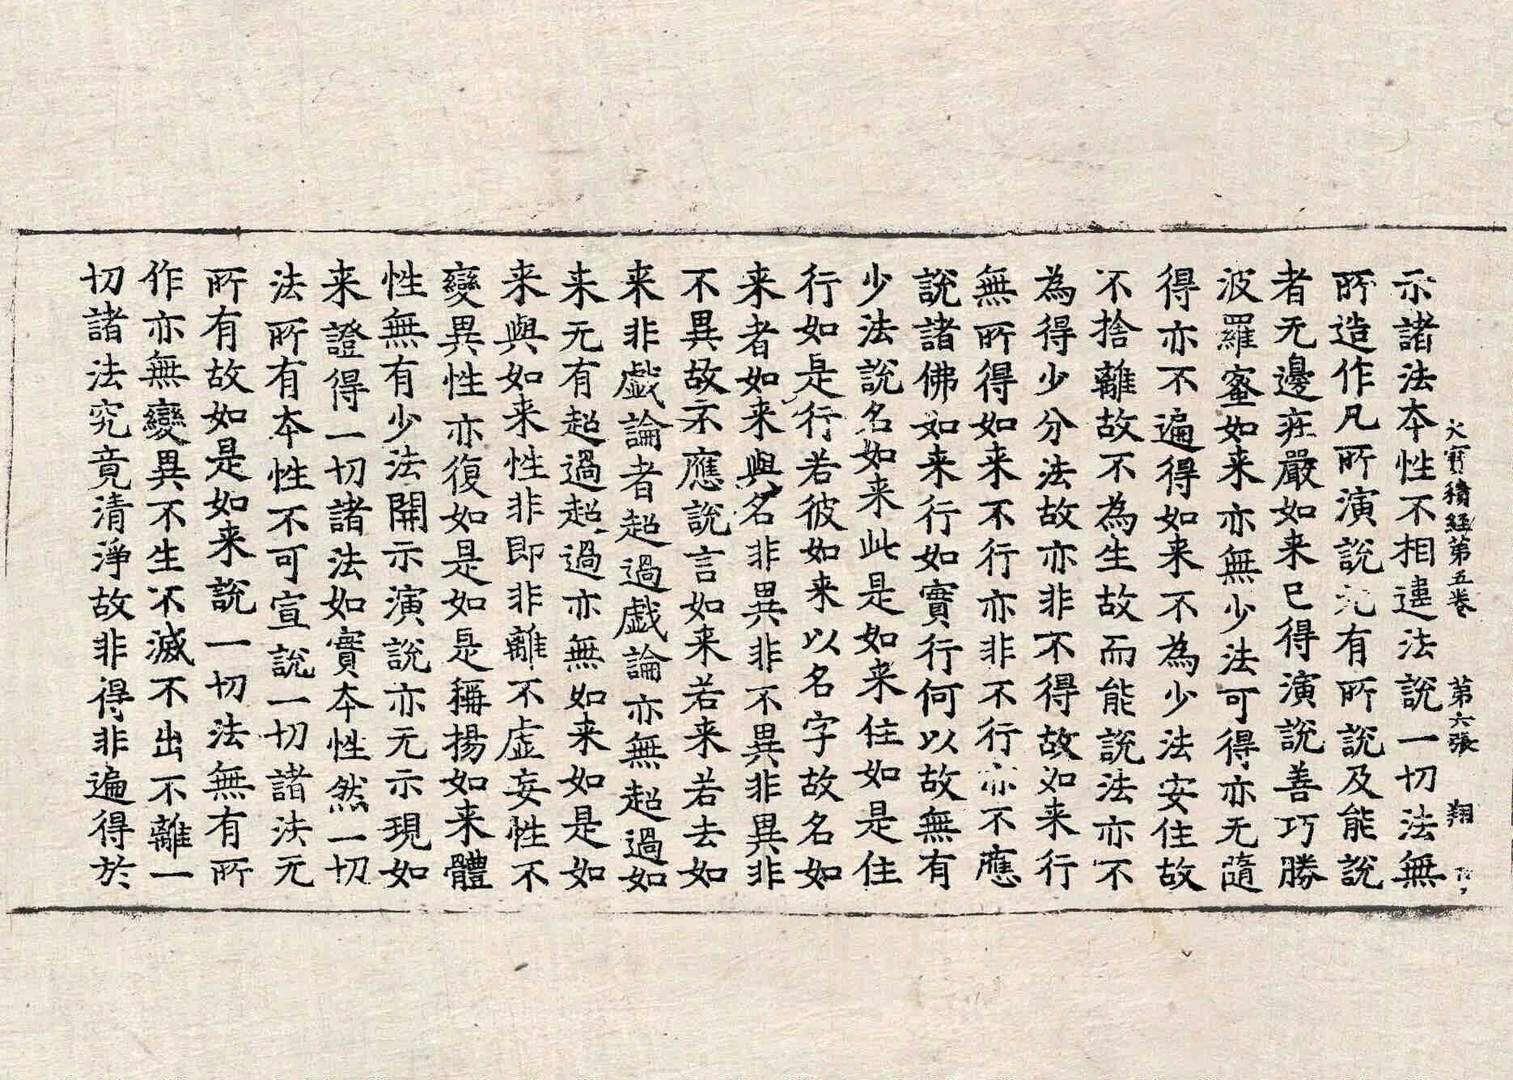 大寶積經第五卷 第六張 翔
示諸法夲性不相違法說一切法無
所造作凡所演說无有所說及能說
者无邊莊嚴如来已得演說善巧勝
波羅蜜如来亦無少法可得亦无隨
得亦不遍得如来不為少法安住故
不捨離故不為生故而能說法亦不
為得少分法故亦非不得故如来行
無所得如来不行亦非不行亦不應
說諸佛如来行如實行何以故無有
少法說名如来此是如来住如是住
行如是行若彼如来以名字故名如
来者如来與名非異非不異非異非
不異故不應說言如来若来若去如
来非戱論者超過戱論亦無超過如
来无有超過超過亦無如来如是如
来與如来性非即非離不虛妄性不
變異性亦復如是如是稱揚如来體
性無有少法開示演說亦无示現如
来證得一切諸法如實夲性然一切
法所有夲性不可宣說一切諸法无
所有故如是如来說一切法無有所
作亦無變異不生不滅不出不離一
切諸法究竟清淨故非得非遍得於